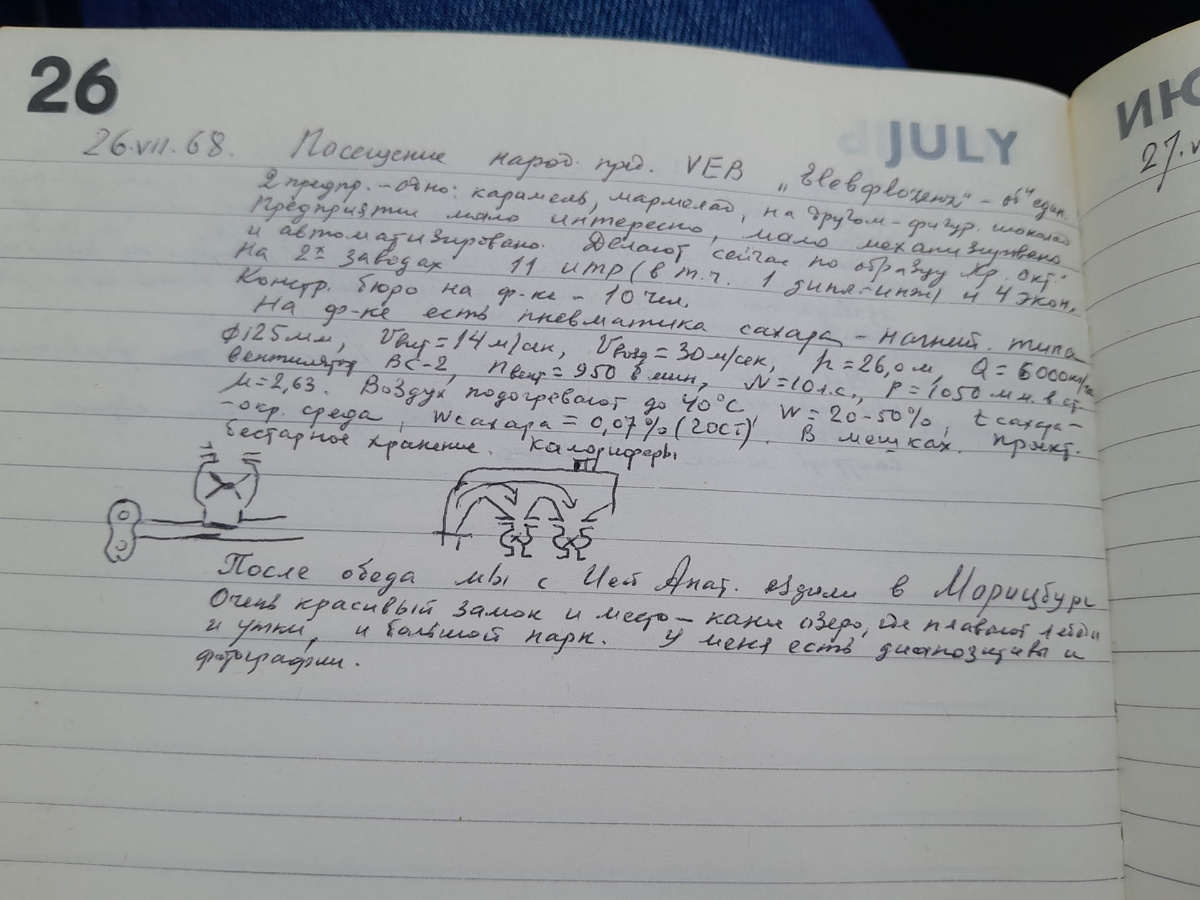 26
JULY
ИЮ
26.VII.68. Посещение народ. пред. VEB „Эльбфлоренц" – объедин.
2 предпр. – одно: карамель, мармелад, на другом – фигур. шоколад
Предприятия мало интересно, мало механизировано
и автоматизировано. Делают сейчас по образцу Кр. Окт."
На 2х заводах 11 итр (в т.ч. 1 дипл-инж) и 4 экон.
Констр. бюро на ф-ке – 10 чел.
На ф-ке есть пневматика сахара – нагнит. типа
ϕ125мм, Vвит = 14 м/сек, Vвозд = 30м/сек, h = 26,0 м, Q = 6000кг/час
вентилятор ВС-2, nвент = 950 в мин, N = 10 л.с., P = 1050 мм. в. ст.
μ = 2,63. Воздух подогревают до 40°С W = 20-50%, t сахара –
– окр. среда, Wсахара = 0,07% (ГОСТ). В мешках. Проект.
бестарное хранение. Калориферы
После обеда мы с Анат. ездили в Морицбург
Очень красивый замок и место – озеро, где плавают лебеди
и утки, и большой парк. У меня есть диапозитивы и
фотографии.
27.V